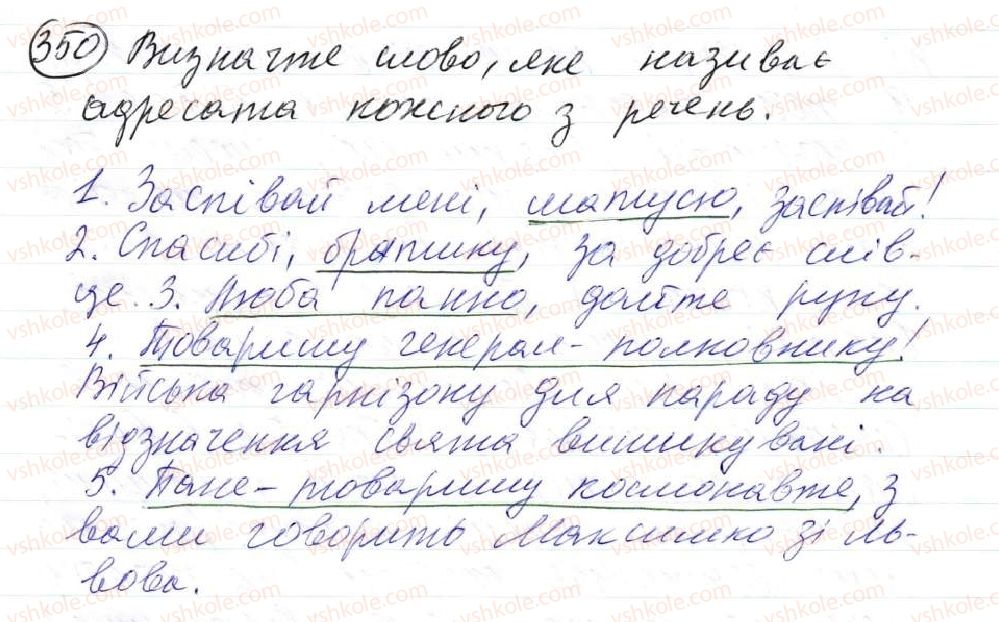 350 Визначте слово, яке називає
адресата кожного з речень.
1. Заспівай мені, матусю, заспівай!
2. Спасибі, братику, за добреє слів-
це. 3. Люба панно, дайте руку.
4. Товаришу генерал-полковнику!
Війська гарнізону для параду на
відзначення свята вишикувані.
5. Пане-товаришу космонавте, з
вами говорить Максимко зі Ль-
вова.